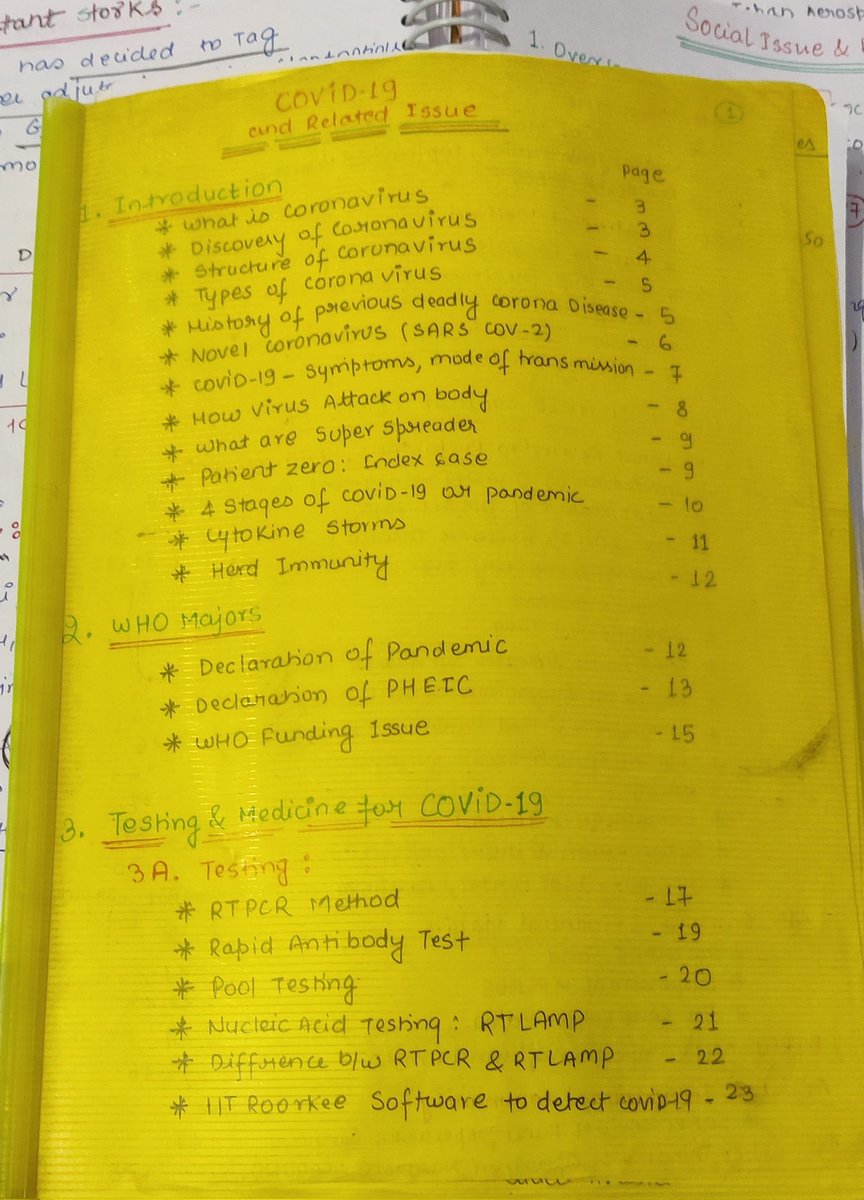 tant storks :-
has decided to Tag
1. Overv
Social Issue &
COVID-19
and Related Issue
1
Page
1. Introduction
* what is coronavirus - 3
* Discovery of coronavirus - 3
* Structure of coronavirus - 4
* Types of corona virus - 5
* History of previous deadly corona Disease - 5
* Novel coronavirus (SARS COV-2) - 6
* COVID-19 - Symptoms, mode of transmission - 7
* How Virus Attack on body - 8
* What are Super Spreader - 9
* Patient zero: Index case - 9
* 4 Stages of COVID-19 or pandemic - 10
* Cytokine Storms - 11
* Herd Immunity - 12
2. WHO Majors
* Declaration of Pandemic - 12
* Declaration of PHEIC - 13
* WHO Funding Issue - 15
3. Testing & Medicine for COVID-19
3A. Testing :
* RTPCR Method - 17
* Rapid Antibody Test - 19
* Pool Testing - 20
* Nucleic Acid Testing : RTLAMP - 21
* Diffrence b/w RTPCR & RTLAMP - 22
* IIT Roorkee Software to detect covid-19 - 23